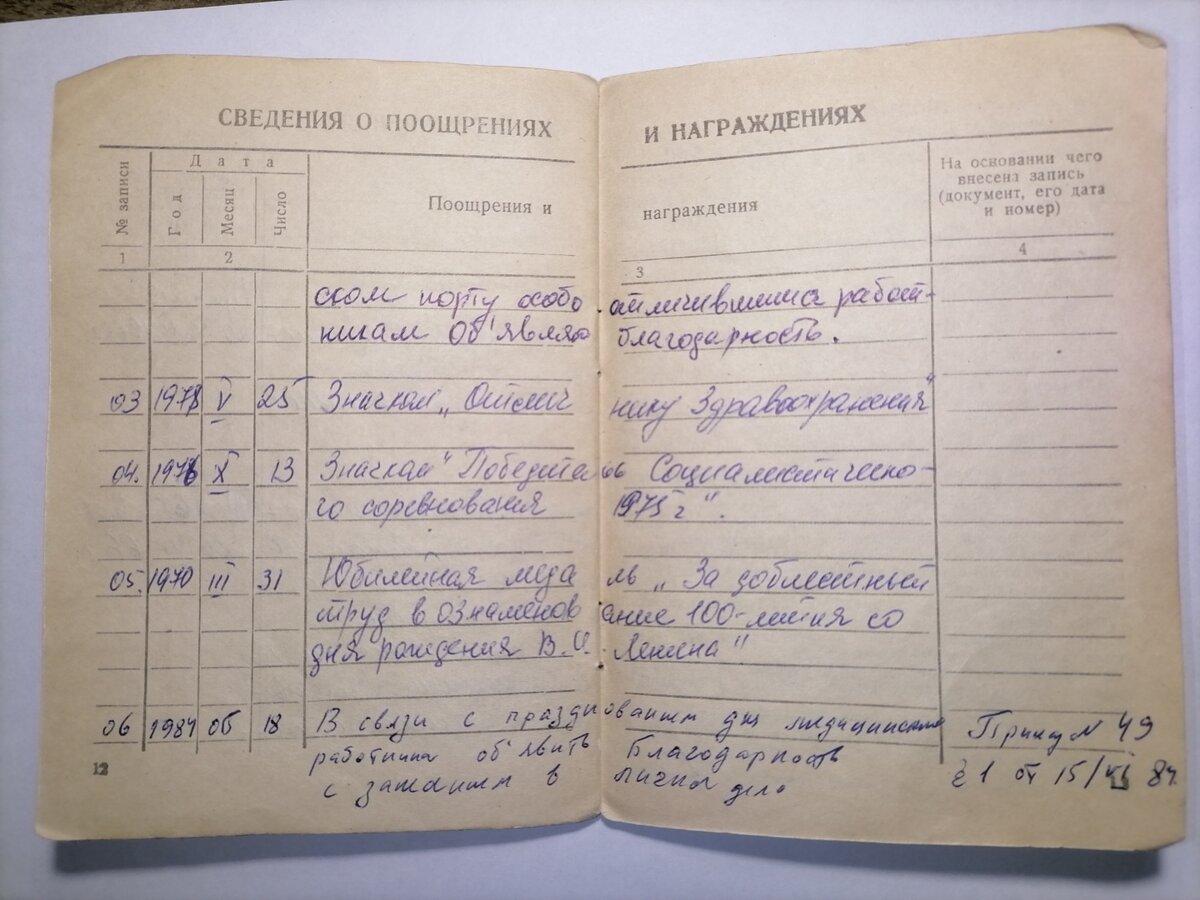 СВЕДЕНИЯ О ПООЩРЕНИЯХ И НАГРАЖДЕНИЯХ
№ записи
Дата
Год
Месяц
Число
Поощрения и награждения
На основании чего
внесена запись
(документ, его дата
и номер)
1 2 3 4
ском порту особо отличившимся работ-
никам об'являю благодарность.
03 197 V 25 Значком „Отличнику Здравоохранения"
04. 1976 X 13 Значком "Победитель Социалистическо-
го соревнования 1975 г".
05. 1970 III 31 Юбилейная медаль „За доблестный
труд в ознаменование 100-летия со
дня рождения В.И. Ленина"
06 1984 06 18 В связи с празднованием дня медицинского Приказ № 49
работника об'явить Благодарность § 1 от 15/VI 84г.
с занесением в личное дело
12